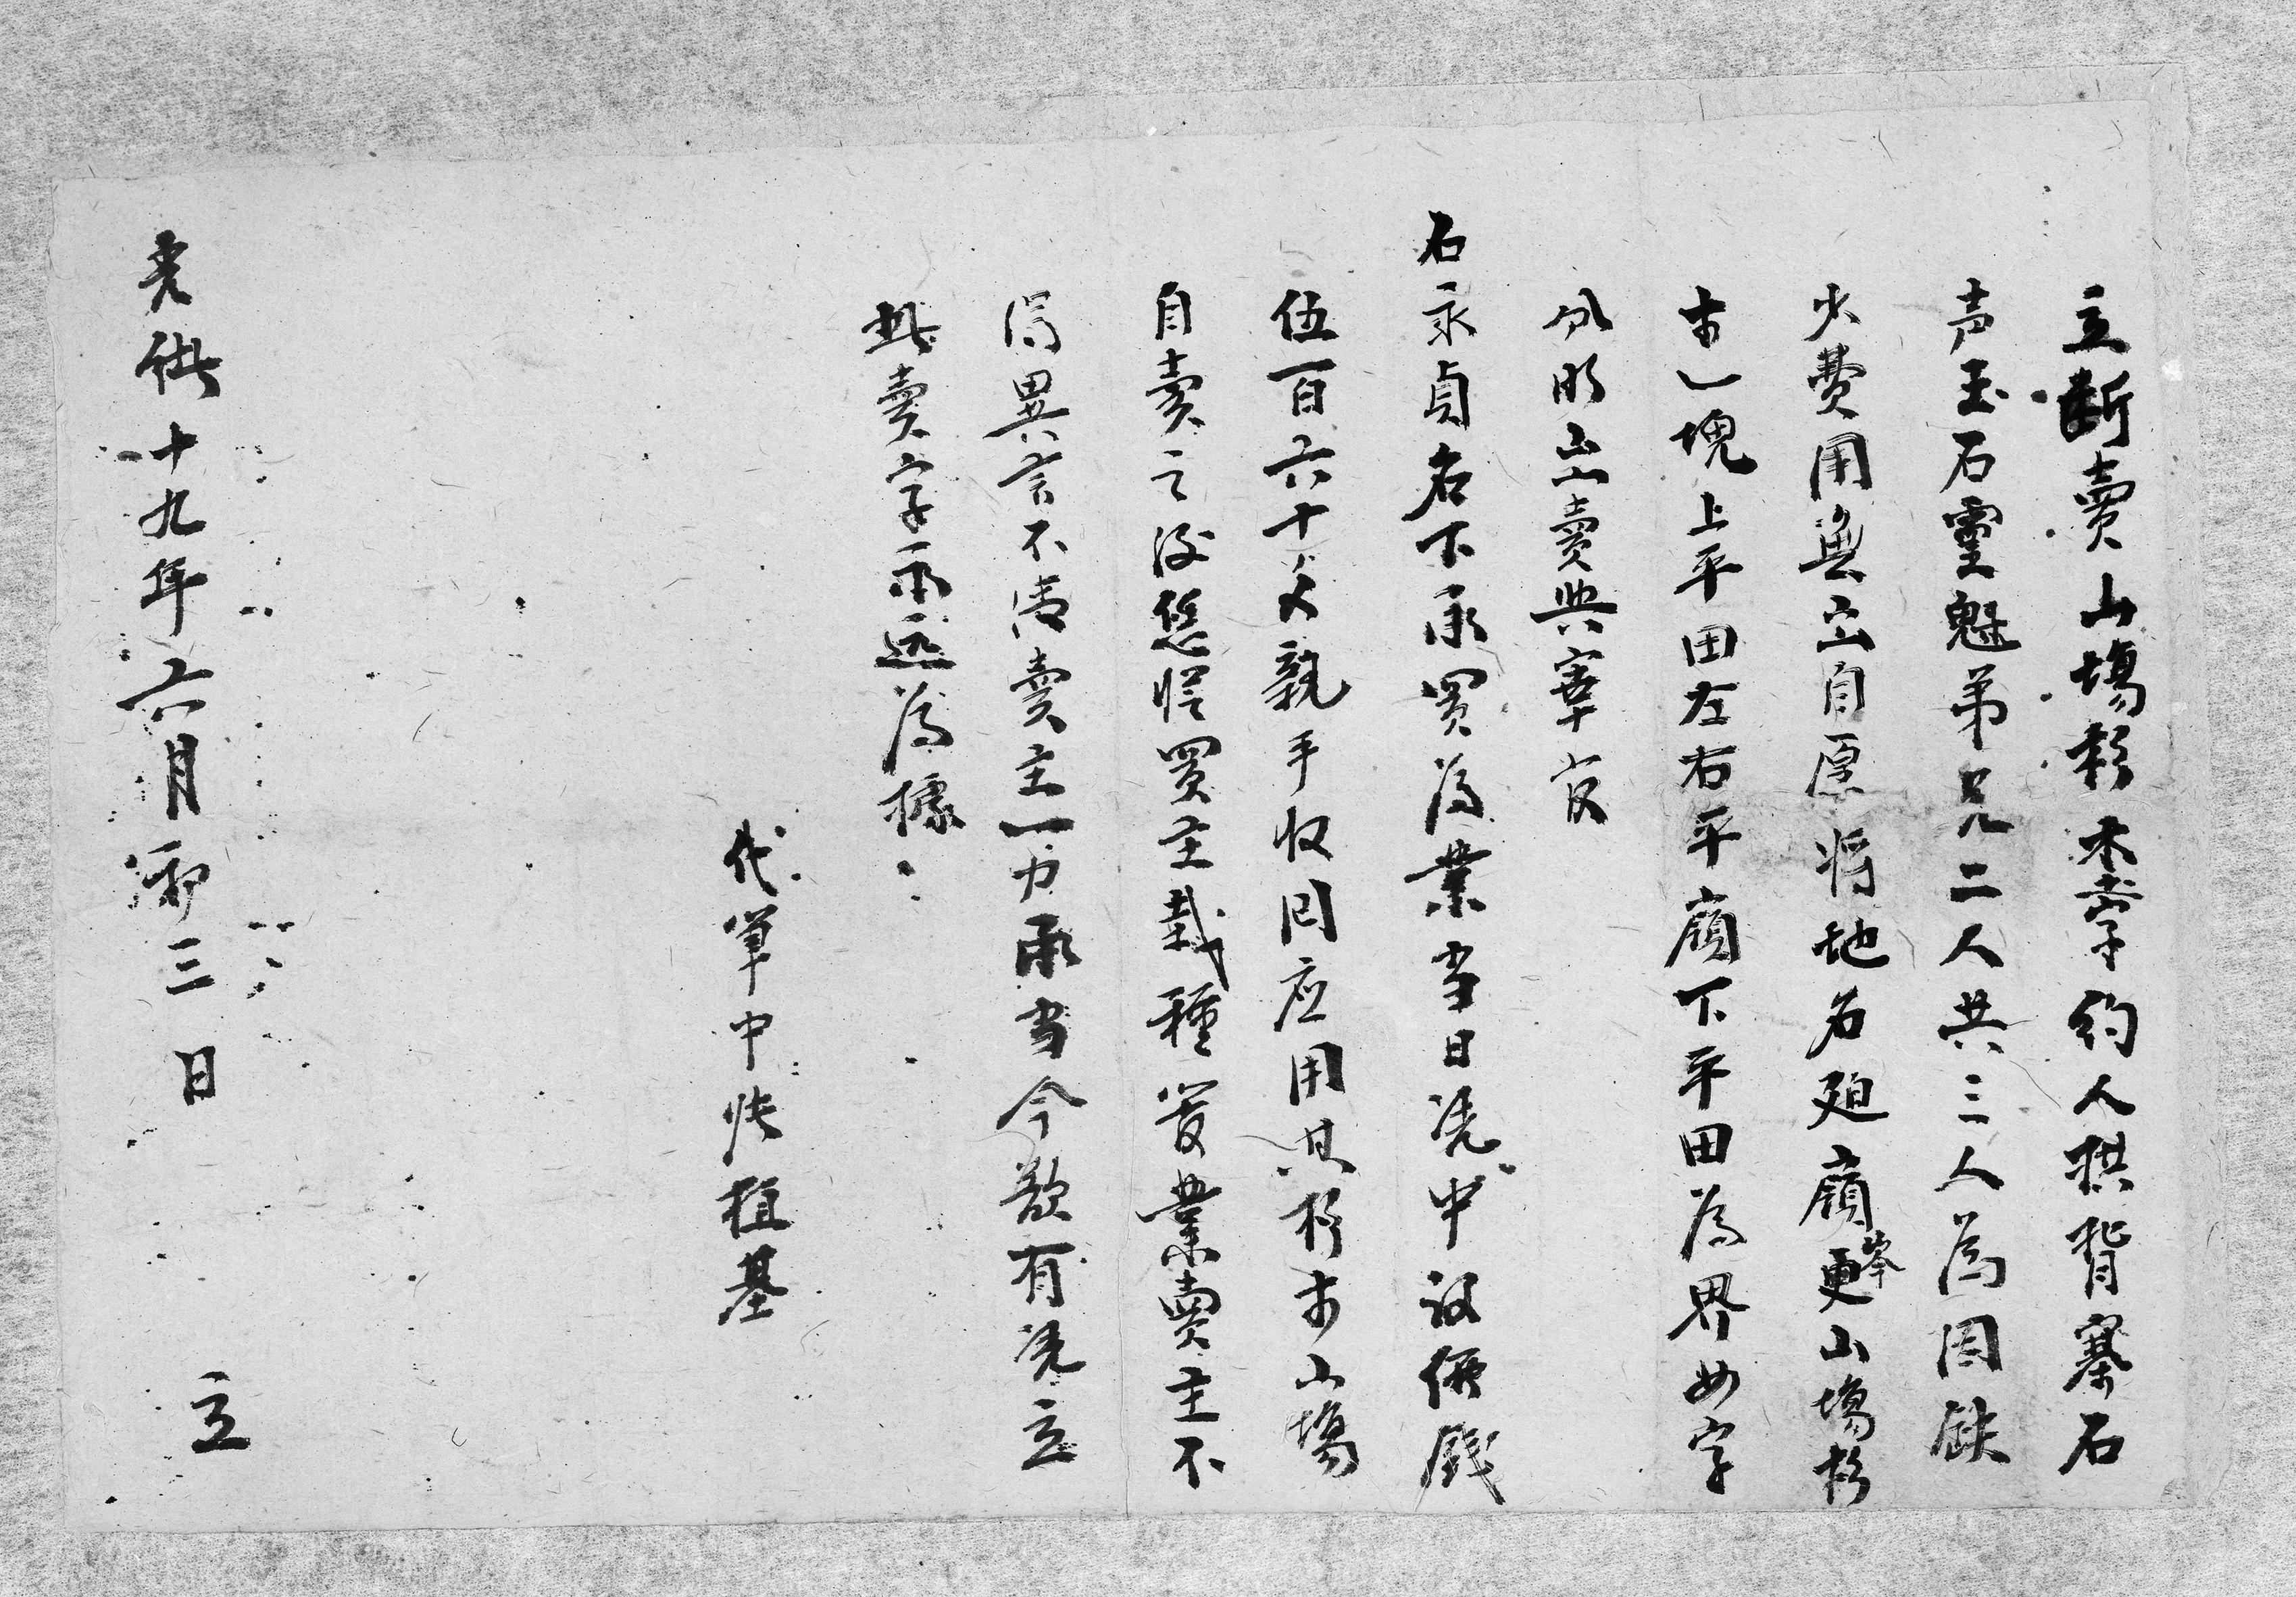 立断賣山塲杉木字約人拱背寨石
声玉石靈魁弟兄二人共三人爲因缺
少費用無出自愿将地名廹嶺岑更山塲杉
木一塊上平田左右平嶺下平田爲界四字
分明出賣與寨叚
石永貞名下承買爲業當日凴中議價錢
伍百六十文親手收囘应用其杉木山塲
自賣之後恁從買主栽種管業賣主不
得異言不清賣主一力承當今欲有凴立
此賣字承远爲據
代筆中張植基
光緒十九年六月初三日 立